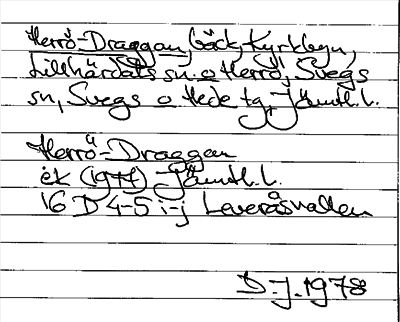 Herrö-Draggan, bäck, Kyrkbyn,
Lillhärdals sn. o Herrö, Svegs
sn, Svegs o Hede tg, Jämtl. l.
Herrö-Draggan
ek (1977) Jämtl. l.
16 D 4-5 i-j Leveråsvallen
D.J. 1978